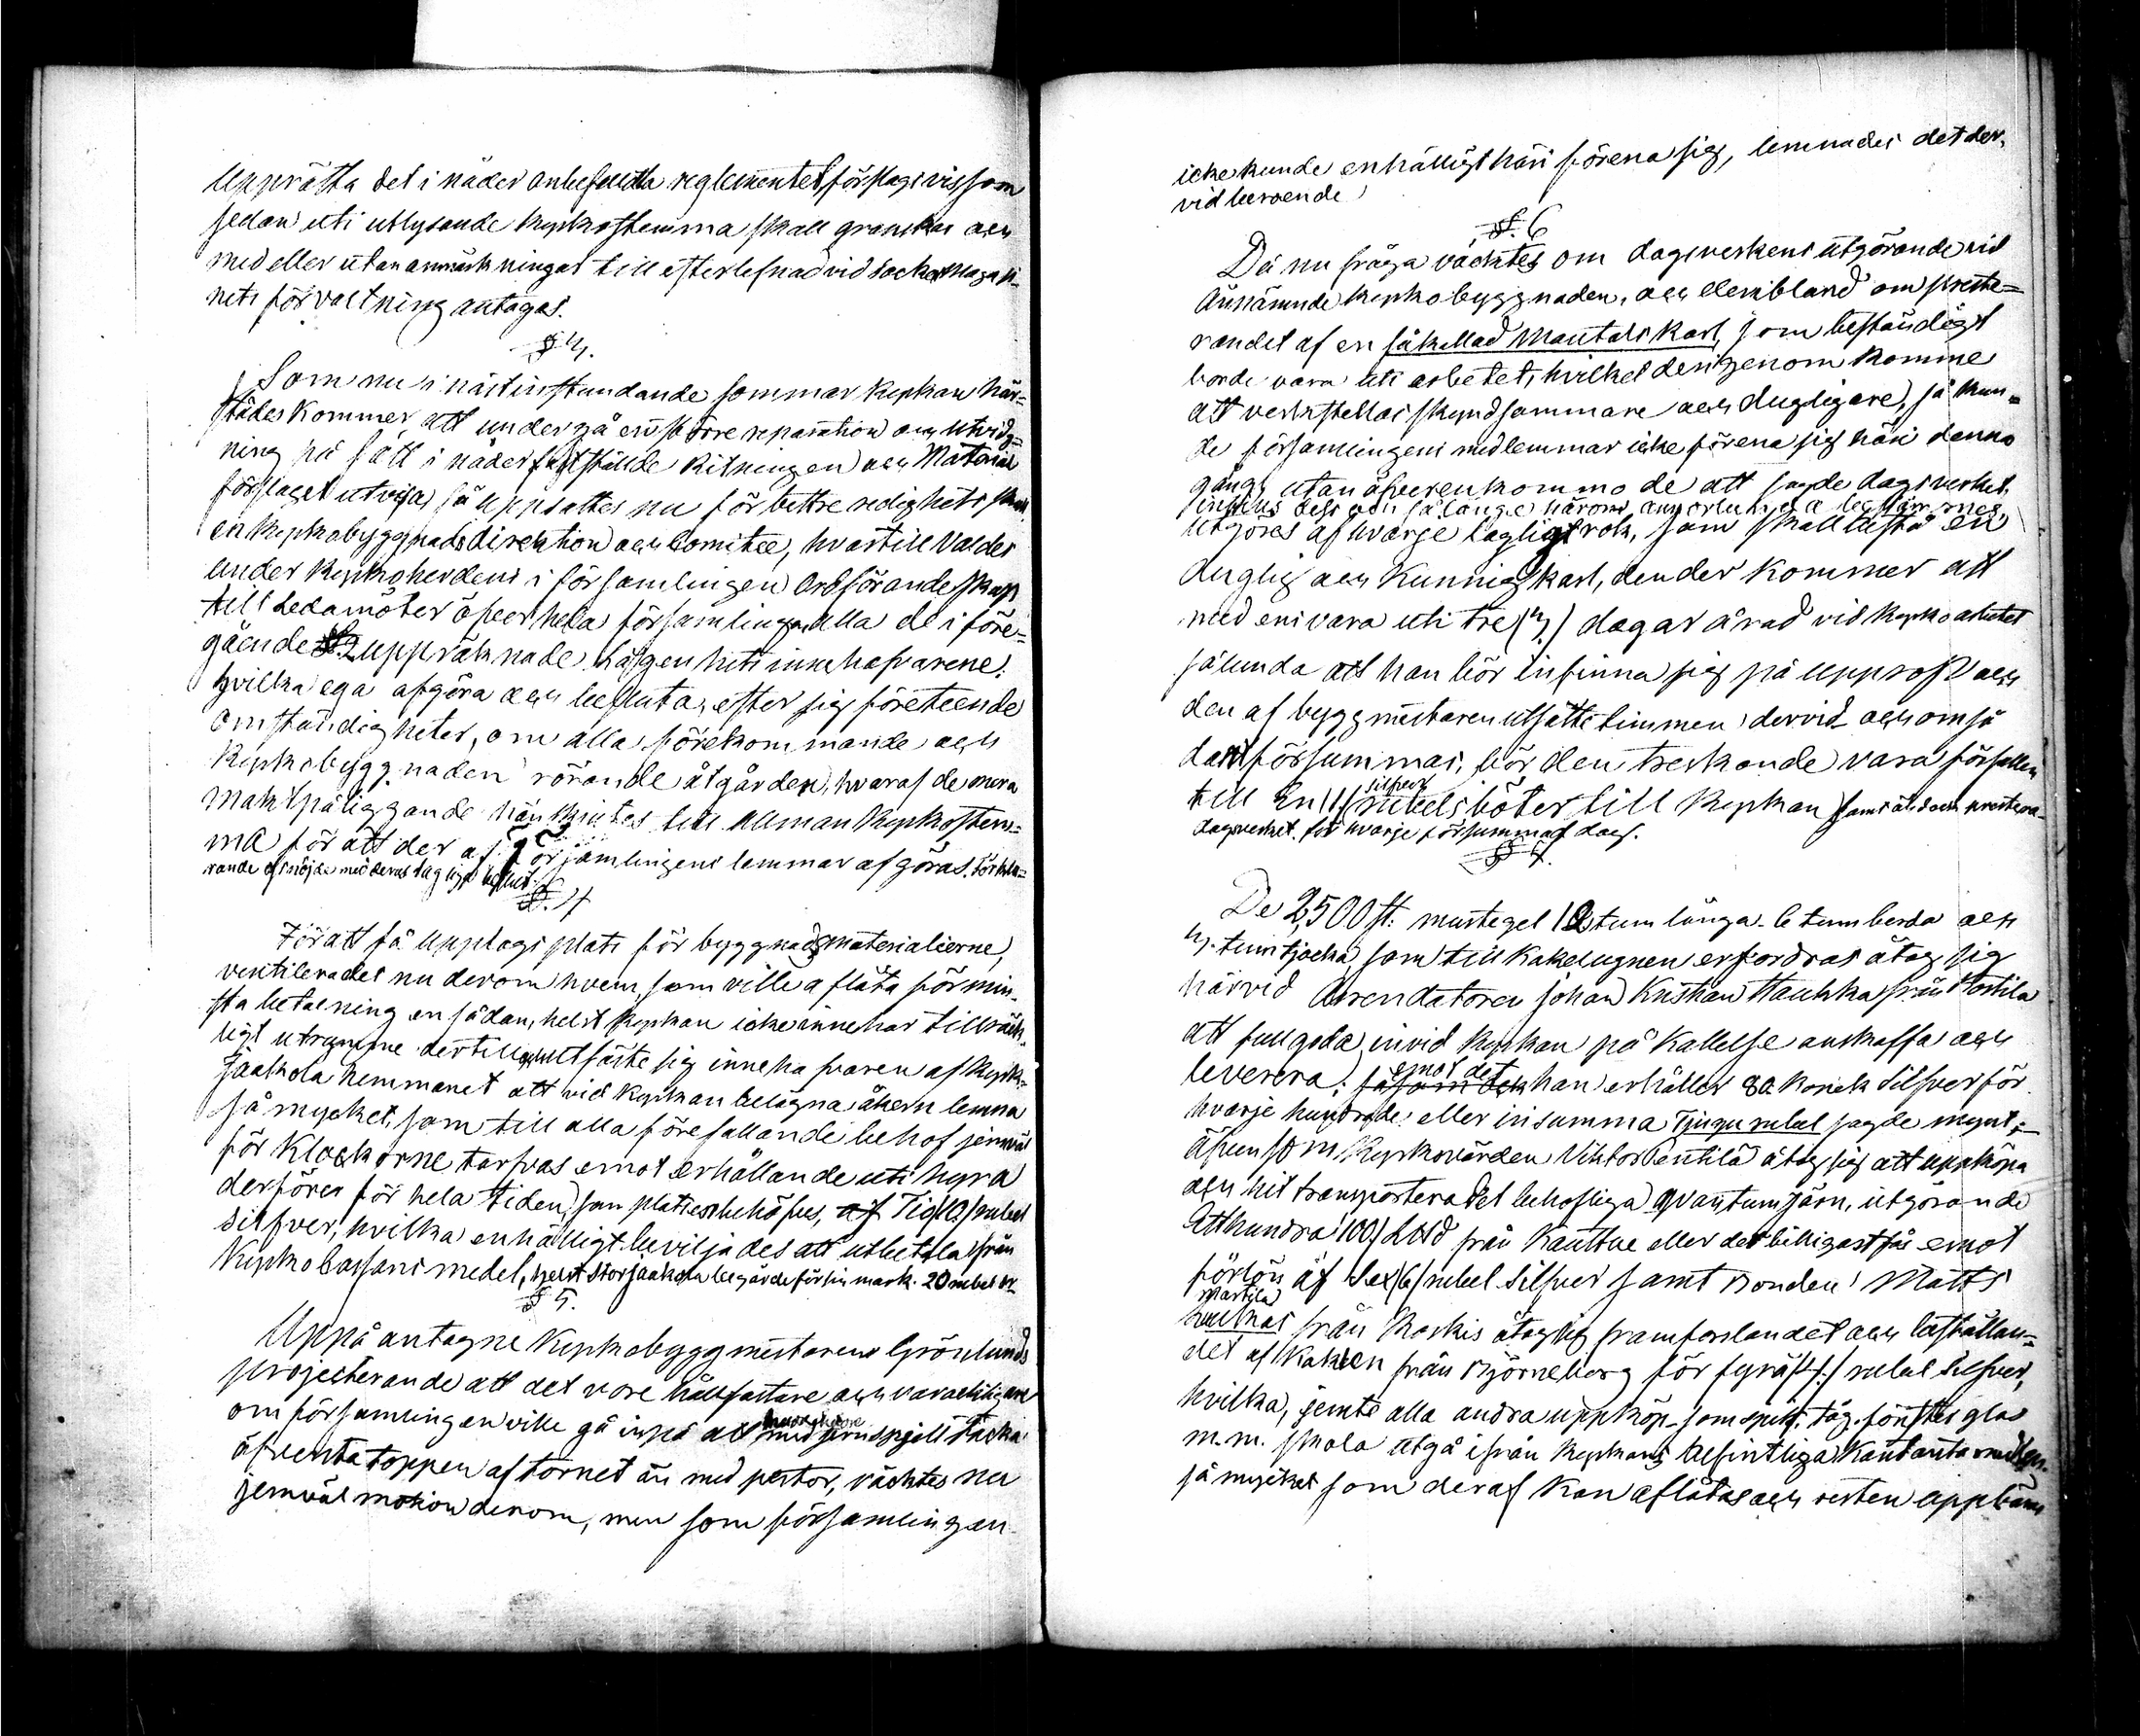 Upprätta det i nåder anbefallda reglementetsförslagsvis som
sedan uti utlysande Kyrkostemma skall granskas och
med eller utan anmärkningar till efterlefnad vid Sockne Magasi-
nets förvaltning antagas.
§ 3.
Som nu i nästinstundande sommar Kyrkan här-
städes kommer att undergå en större reparation och utvidg-
ning på sätt i nåder fastställde Ritningen och Material
förslaget utvisa, så uppsattes nu för bettre redighets skull
en Kyrkobyggnads direktion och Comitee, hvartill valdes
under Kyrkoherdens i församlingen Ordförandeskap
till Ledamöter öfver hela församlingen alla de i före-
gående § 2 uppräknade lägenhets innehafvarene,
hvilka ega afgöra och besluta, efter sig företeende
omständigheter, om alla förekommande och
Kyrkobyggnaden rörande åtgärder, hvaraf de mera
maktpåliggande hänskjutes till allman Kyrkostem-
ma för att der af Församlingens lemmar afgöras. Förkla-
rande sig nöjde med deras lagliga beslut.
§. 4
För att få upplagsplats för byggnadsmaterialierne,
ventilerades nu derom hvem, som ville aflåta för min-
sta betalning en sådan, helst Kyrkan icke innehar tillräck-
ligt utrymme dertill, och utfäste sig innehafvaren af Kyrk-
Jaakola hemmanet att vid Kyrkan belägna åkern lemna
så mycket, som till alla förefallande behof jemväl
för Klockorne tarfvas emot erhållande uti hyra
derföre för hela tiden, som platsen behöfves, af Tio /10/ rubel
Silfver, hvilka enhälligt beviljades att utbetala från
Kyrkobassans medel, helst Storjaakola begärde för sin mark 20 rubel Sr.
§ 5.
Uppå antagne Kyrkobyggmestarens Grönlunds
projecterande att det vore hållfastare och varaktigare
om församlingen ville gå in på att med jernspjell täcka
öfversta toppen af tornet än med pertor, väcktes nu
jemväl motion derom, men som församlingen
icke kunde enhälligt häri förena sig, lemnades det der-
vid beroende.
§. 6
Då nu fråga väcktes om dagsverkens utgörande vid
ännämnde Kyrkobyggnaden, och deribland om preste-
randet af en såkallad Mantals Karl, som beständigt
borde vara uti arbetet, hvilket derigenom komme
att verkställas skyndsammare och dugligare, så kun-
de församlingens medlemmar icke förena sig häri denna
gång, utan öfverenkommo de att sagde dagsverket,
utgöres af hvarje lagligt rök, som skall lista en
duglig och kunnig karl, den der kommer att
med en vara uti tre (3.) dagar å rad vid Kyrkoarbetet
sålunda att han bör infinna sig på upprop och
den af byggmestaren utsatte timmen dervid och om så
dant försummas, bör den treskande vara förfallen
till En /1/ silfver rubels böter till Kyrkan samt ändock prestera
dagsverket för hvarje försummad dag.
§ 7.
De 2,500 st: murtegel 12 tum långa 6 tum breda och
3. tum tjocka, som till Kakelugnen erfordras åtog sig
härvid Arrendatoren Johan Kristian Haukka från Tortila
att fullgoda invid Kyrkan på kallelse anskaffa och
leverera; emot det han erhåller 80. kopek Silfver för
hvarje hundrade eller in summa Tjugu rubel sagde mynt;
äfvensom Kyrkovärden Viktor Pentilä åtog sig att uppköpa
och hit transportera det behofliga qvantum järn, utgörande
Etthundra 100/ Lisspd från Kauttua eller der billigast fås emot
förlön af Sex /6/ rubel Silfver samt Bonden Matts
Martila
från Koskis åtog sig framforslandet och beställan-
det af Kaklen från Björneborg för fyra /4/ rubel Silfver,
hvilka, jemte alla andra uppköp som spik, tåg, fönsterglas
m.m. skola utgå ifrån Kyrkans befintliga kontanta medlen
så mycket som deraf kan aflåtas och resten uppbäras